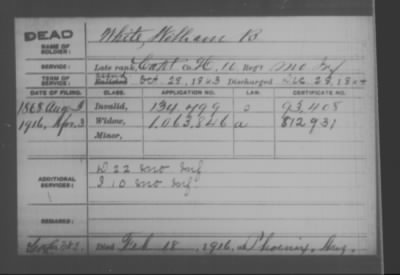 DEAD
White, William B
NAME OF SOLDIER:
SERVICE: Late rank, Capt Co. H, 11 Reg't Mo Inf
TERM OF SERVICE: Enlisted Oct. 29, 1863 Discharged Dec 29, 1864
DATE OF FILING. CLASS. APPLICATION NO. LAW. CERTIFICATE NO.
1868 Aug Invalid, 134,499 93,408
1916, Apr. 3 Widow, 1,063,846 a 812931
Minor,
ADDITIONAL SERVICES: D 22 Mo Inf
I 10 Mo Inf
REMARKS:
Died Feb 18, 1916, at Phoenix,